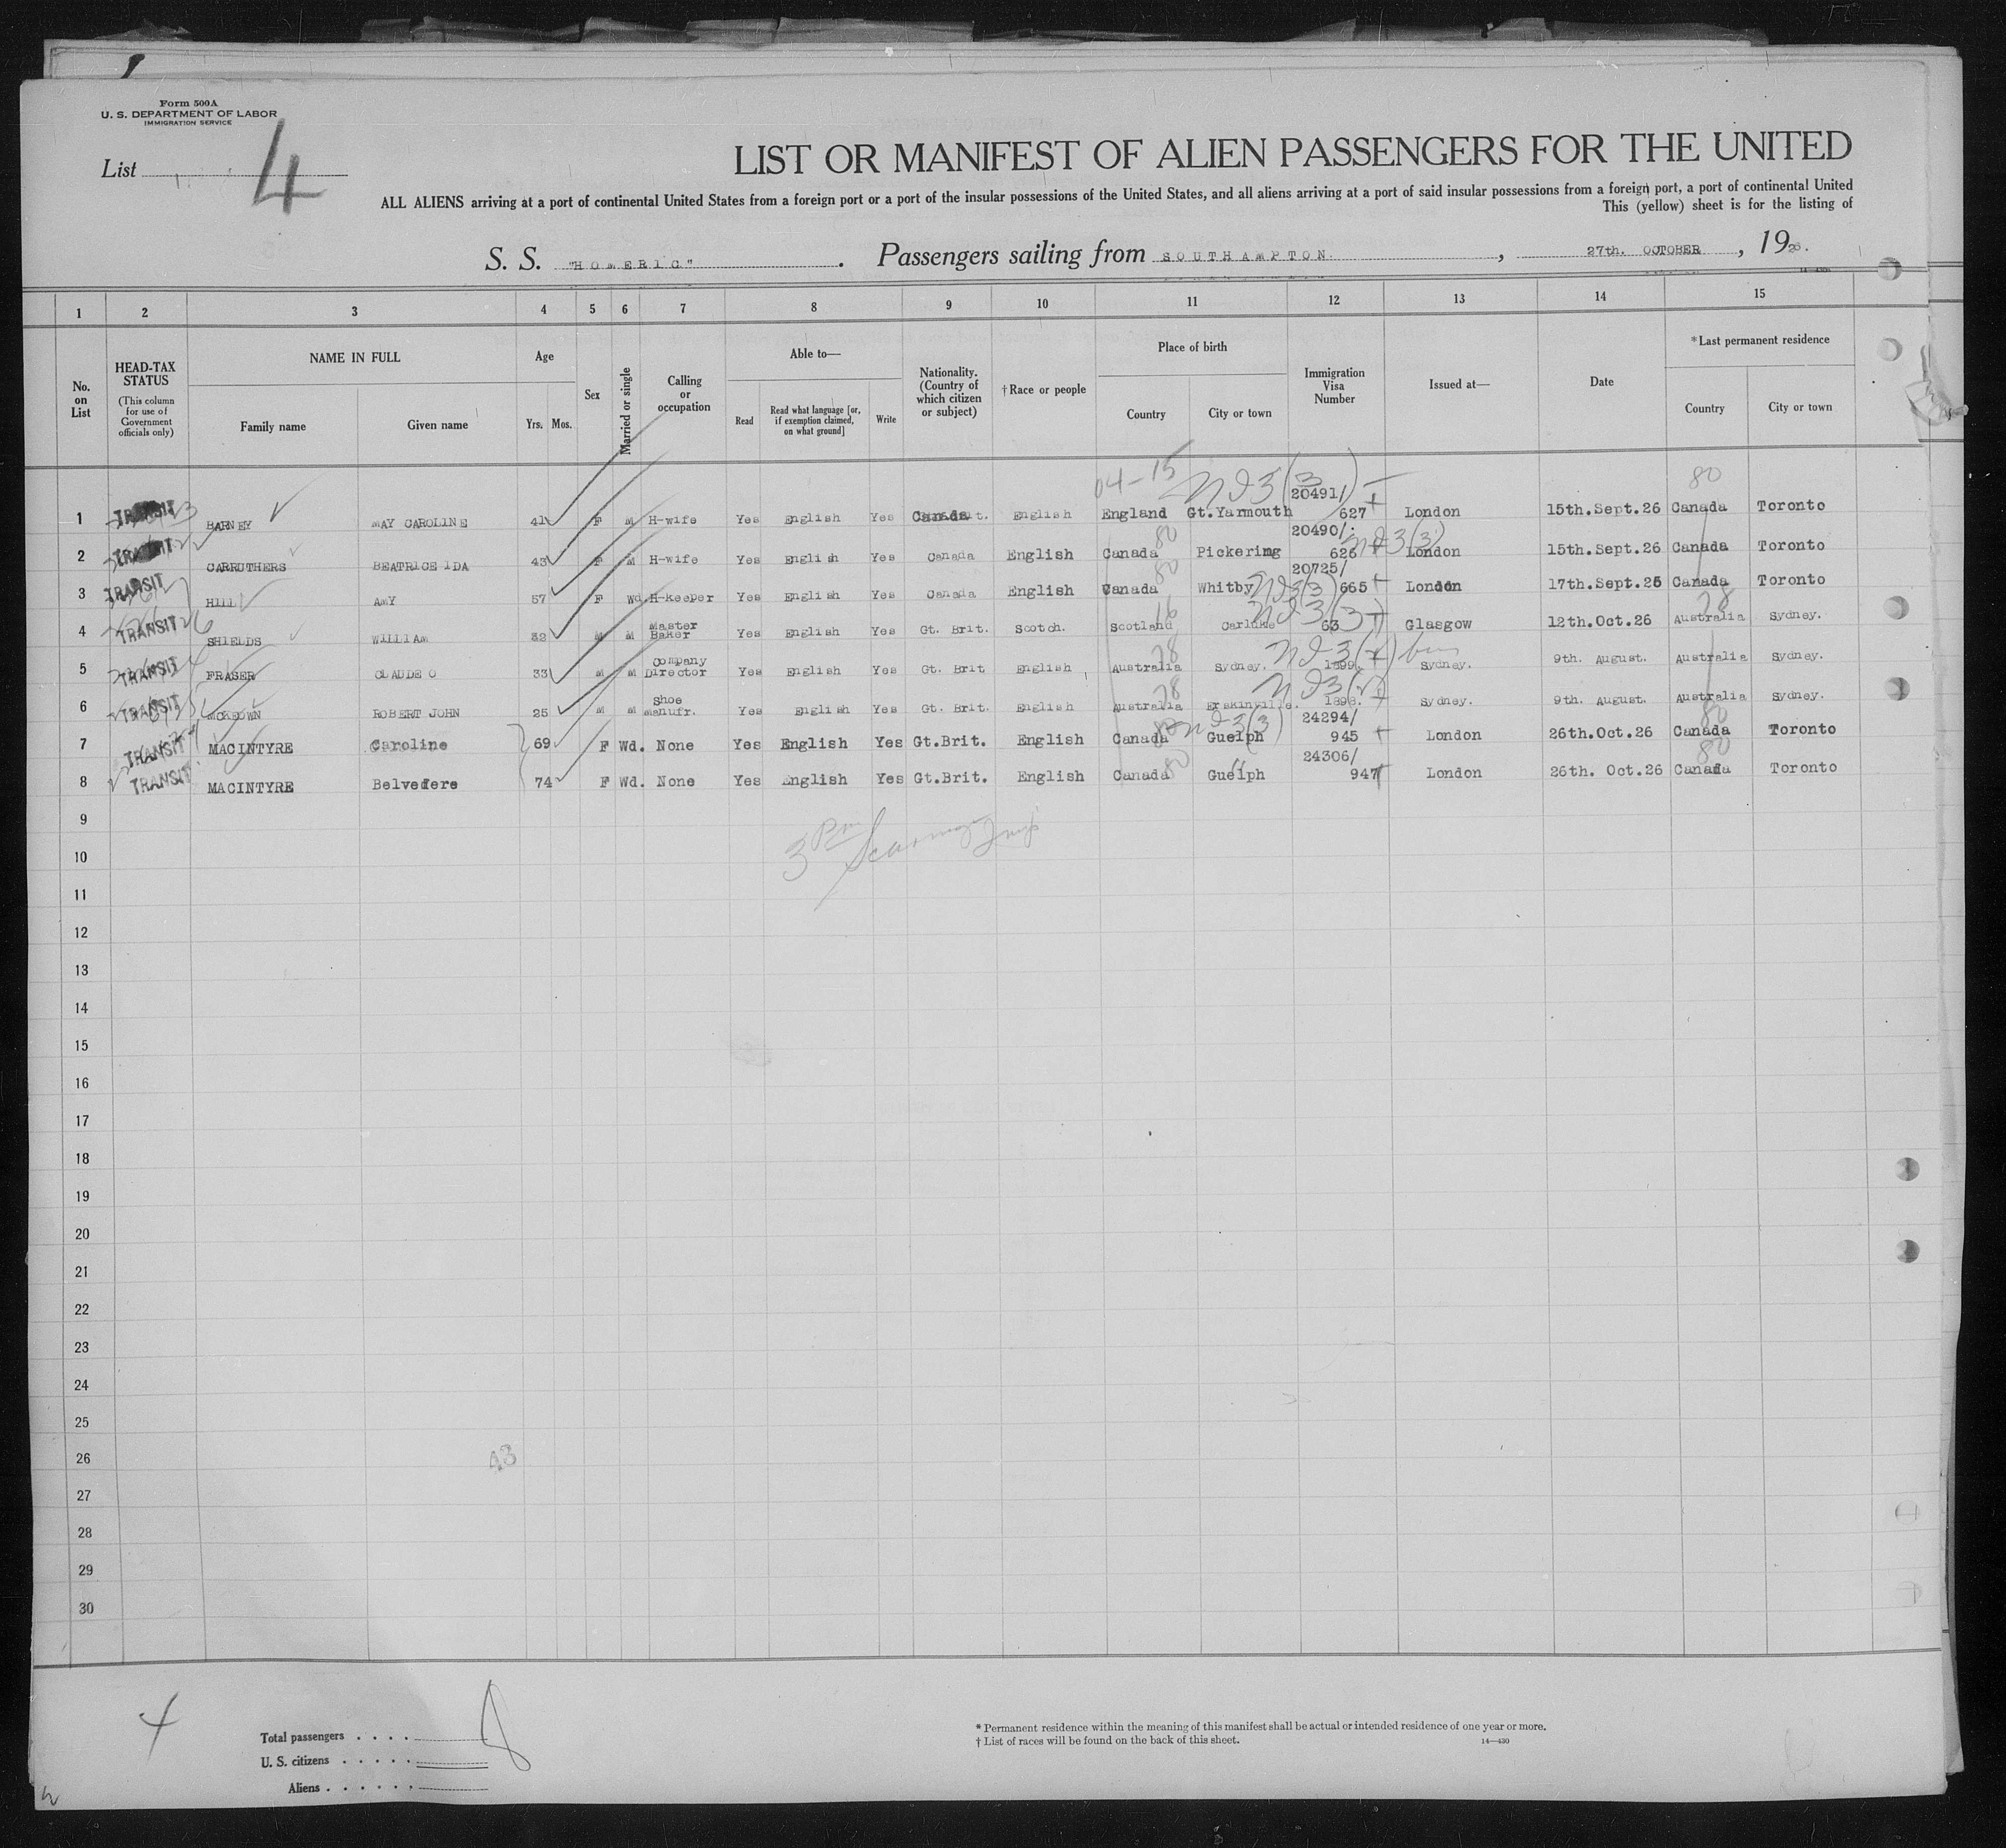 Form 500A
U. S. DEPARTMENT OF LABOR
IMMIGRATION SERVICE
List 4
LIST OR MANIFEST OF ALIEN PASSENGERS FOR THE UNITED
ALL ALIENS arriving at a port of continental United States from a foreign port or a port of the insular possessions of the United States, and all aliens arriving at a port of said insular possessions from a foreign port, a port of continental United
This (yellow) sheet is for the listing of
S. S. "HOMERIC". Passengers sailing from SOUTHAMPTON, 27th. OCTOBER, 1926.
1 2 3 4 5 6 7 8 9 10 11 12 13 14 15
No. on List
HEAD-TAX STATUS (This column for use of Government officials only)
NAME IN FULL Family name Given name
Age Yrs. Mos.
Sex
Married or single
Calling or occupation
Able to— Read Read what language [or, if exemption claimed, on what ground] Write
Nationality. (Country of which citizen or subject)
†Race or people
Place of birth Country City or town
Immigration Visa Number
Issued at—
Date
*Last permanent residence Country City or town
04-15 80
1 TRANSIT BARNEY MAY CAROLINE 41 F M H-wife Yes English Yes Canada English England Gt.Yarmouth 20491/627 London 15th.Sept.26 Canada Toronto
2 TRANSIT CARRUTHERS BEATRICE IDA 43 F M H-wife Yes English Yes Canada English Canada Pickering 20490/626 London 15th.Sept.26 Canada Toronto
3 TRANSIT HILL AMY 57 F Wd H-keeper Yes English Yes Canada English Canada Whitby 20725/665 London 17th.Sept.26 Canada Toronto
4 TRANSIT SHIELDS WILLIAM 32 M M Master Baker Yes English Yes Gt. Brit. Scotch. Scotland Carluke 63 Glasgow 12th.Oct.26 Australia Sydney.
5 TRANSIT FRASER CLAUDE O 33 M M Company Director Yes English Yes Gt. Brit English Australia Sydney. 1899. Sydney. 9th. August. Australia Sydney.
6 TRANSIT MCKEOWN ROBERT JOHN 25 M M Shoe Manufr. Yes English Yes Gt. Brit. English Australia Erskinville. 1898. Sydney. 9th. August. Australia Sydney.
7 TRANSIT MACINTYRE Caroline 69 F Wd. None Yes English Yes Gt.Brit. English Canada Guelph 24294/945 London 26th.Oct.26 Canada Toronto
8 TRANSIT MACINTYRE Belvedere 74 F Wd. None Yes English Yes Gt.Brit. English Canada Guelph 24306/947 London 26th. Oct.26 Canada Toronto
9
10
11
12
13
14
15
16
17
18
19
20
21
22
23
24
25
26
27
28
29
30
43
4
Total passengers . . . . 8
U. S. citizens . . . . .
Aliens . . . . . .
* Permanent residence within the meaning of this manifest shall be actual or intended residence of one year or more.
† List of races will be found on the back of this sheet. 14—430